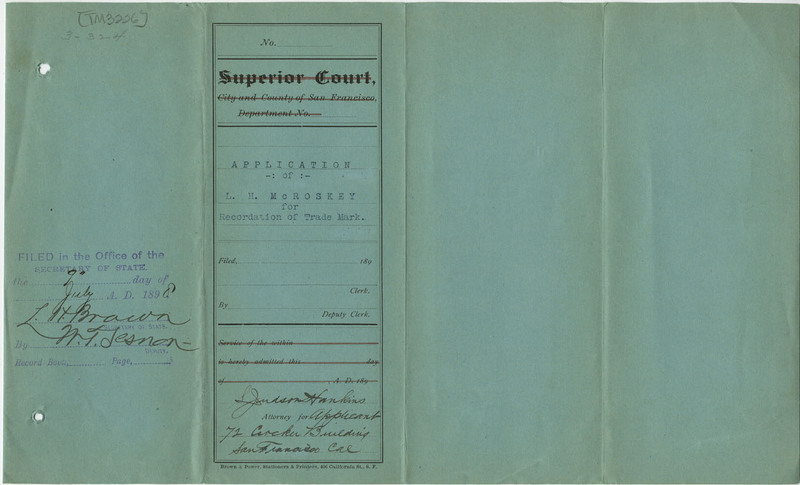 [TM3226]
FILED in the Office of the
SECRETARY OF STATE.
the 7 day of
July A. D. 1898
L. H. Brown
SECRETARY OF STATE.
By W. T. Sesnon
DEPUTY.
Record Book Page
No.
Superior Court,
City and County of San Francisco,
Department No.
APPLICATION
-: of :-
L. H. McROSKEY
for
Recordation of Trade Mark.
Filed, 189
Clerk.
By
Deputy Clerk.
Service of the within
is hereby admitted this day
of , A. D. 189
Judson Hankins
Attorney for Applicant
72 Crocker Building
San Francisco Cal
Brown & Power, Stationers & Printers, 402 California St., S. F.